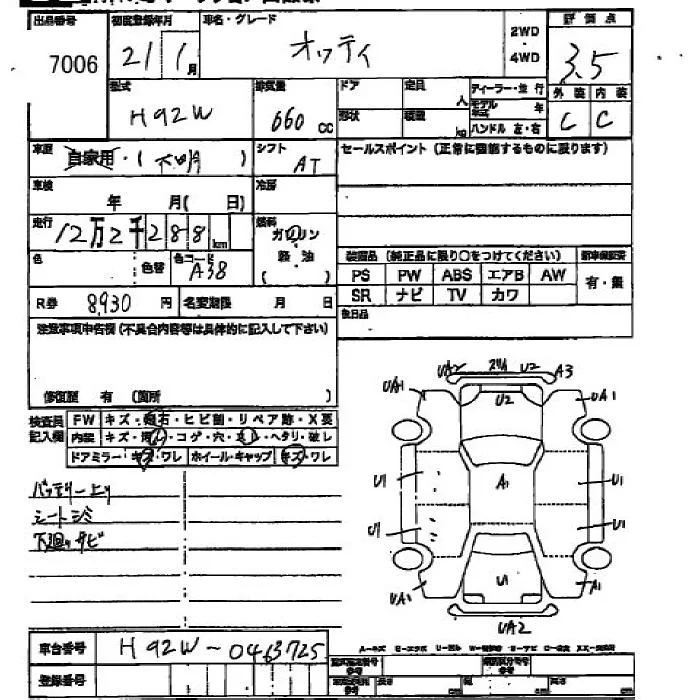 出品番号 初度登録年月 車名・グレード 2WD 4WD 評価点
7006 21/1月 オッティ 3.5
型式 排気量 ドア 定員 人 ディーラー・並行 外装 内装
H92W 660cc 形状 積載 kg モデル年式 年 ハンドル 左・右 C C
車歴 自家用・( ) シフト AT セールスポイント(正常に機能するものに限ります)
車検 年 月( 日) 冷房
走行 12万2千288km 燃料 ガソリン
軽油
( )
色 色替 色コード A38
装備品(純正品に限り○をつけてください) 新車保証書
PS PW ABS エアB AW 有・無
SR ナビ TV カワ
R券 8,930円 名変期限 月 日
後日品
注意事項申告欄(不具合内容等は具体的に記入して下さい)
修復歴 有 (箇所 )
検査員記入欄 FW キズ・飛石・ヒビ割・リペア跡・X要
内装 コゲ・穴・ヘタリ・破レ
ドアミラー・キズ・ワレ ホイール・キャップ キズ・ワレ
シートシミ
下廻サビ
UA2 2UA U2 A3
UA1 U2 UA1
U1 A1 U1
U1 U1
UA1 U1 A1
UA2
車台番号 H92W-0463725
登録番号 型式指定番号 類別区分番号
長さ cm 幅 cm 高さ cm